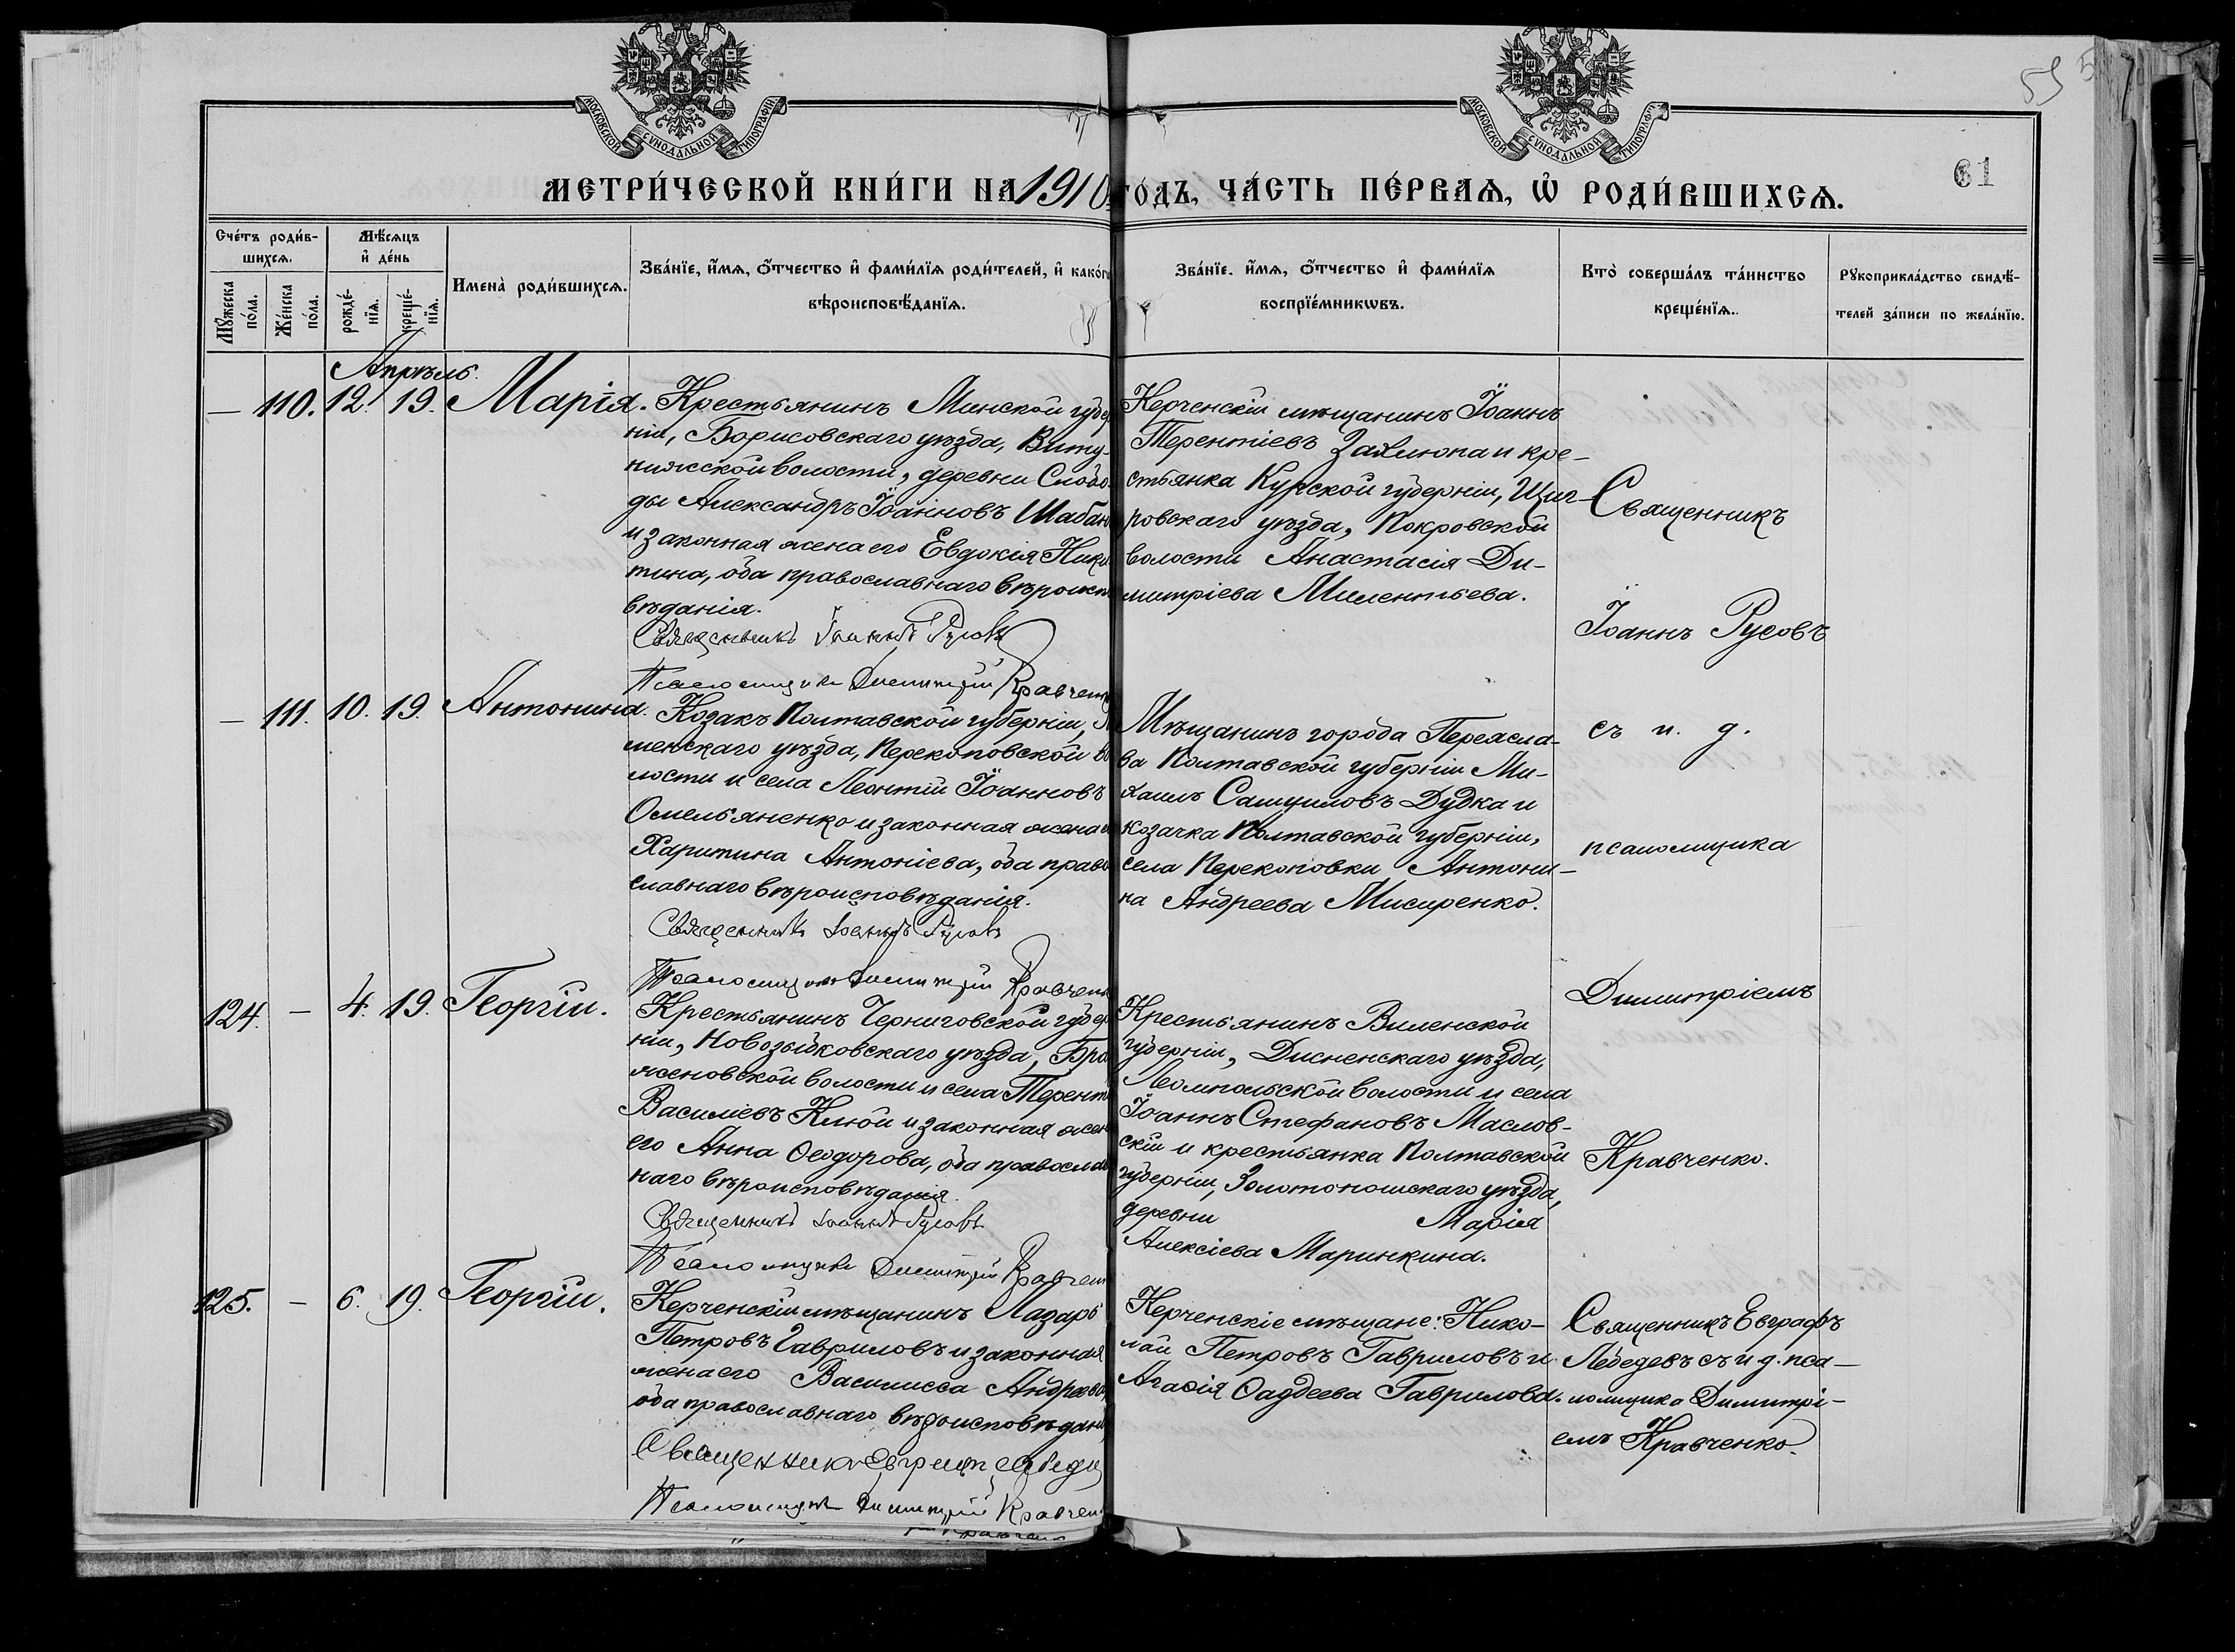 55
61
МОСКОВСКОЙ СѴНОДАЛЬНОЙ ТИПОГРАФІИ
МОСКОВСКОЙ СѴНОДАЛЬНОЙ ТИПОГРАФІИ
МЕТРИ́ЧЕСКОЙ КНИ́ГИ НА 1910 ГО́ДЪ, ЧА́СТЬ ПЕ́РВАѦ, Ѡ҆ РОДИ́ВШИХСѦ.
Сче́тъ роди́в-
шихсѧ.
Мꙋ́жеска по́ла.
Же́нска по́ла.
Мѣ́сѧцъ
и҆ де́нь
рожде́-нїѧ.
креще́-нїѧ.
Имена̀ роди́вшихсѧ.
Зва́нїе, и҆́мѧ, ѻ҆́тчество и҆ фами́лїѧ роди́телей, и҆ како́гѡ
вѣроисповѣ́данїѧ.
Зва́нїе. и҆́мѧ, ѻ҆́тчество и҆ фами́лїѧ
воспрїе́мникѡвъ.
Кто̀ соверша́лъ та́инство
креще́нїѧ.
Рꙋкоприкла́дство свидѣ́-
телей за́писи по жела́нїю.
Апрѣль.
— 110. 12. 19. Марія.
Крестьянинъ Минской губер
ніи, Борисовскаго уѣзда, Виту-
нижской волости, деревни Слобо-
ды Александръ Іоанновъ Шабан
и законная жена его Евдокія Ники
тина, оба православнаго вѣроиспо
вѣданія.
Священникъ Іоаннъ Русовъ
Псаломщикъ Димитрій Кравченк
Керченскій мѣщанинъ Іоаннъ
Терентіевъ Захлюпа и кре-
стьянка Курской губерніи, Щиг-
ровскаго уѣзда, Покровской
волости Анастасія Ди-
митріева Милентьева.
Священникъ
Іоаннъ Русовъ
съ и. д.
псаломщика
Димитріемъ
Кравченко.
— 111. 10. 19. Антонина.
Козакъ Полтавской губерніи, Р
менскаго уѣзда, Перекоповской во
лости и села Леонтій Іоанновъ
Омельяненко и законная жена е
Харитина Антоніева, оба право
славнаго вѣроисповѣданія.
Священникъ Іоаннъ Русовъ
Псаломщикъ Димитрій Кравченк
Мѣщанинъ города Переясла-
ва Полтавской губерніи Ми-
хаилъ Самуиловъ Дудка и
козачка Полтавской губерніи,
села Перекоповки Антони-
на Андреева Мисиренко.
124. — 4. 19. Георгій.
Крестьянинъ Черниговской губер
ніи, Новозыбковскаго уѣзда, Бра
женовской волости и села Терент
Василіевъ Клюй и законная жен
его Анна Ѳеодорова, оба православ
наго вѣроисповѣданія.
Священникъ Іоаннъ Русовъ
Псаломщикъ Димитрій Кравченк
Крестьянинъ Виленской
губерніи, Дисненскаго уѣзда,
Леонпольской волости и села
Іоаннъ Стефановъ Маслов-
скій и крестьянка Полтавской
губерніи, Золотоношскаго уѣзда,
деревни Марія
Алексіева Маринкина.
125. — 6. 19. Георгій.
Керченскій мѣщанинъ Лазарь
Петровъ Гавриловъ и законная
жена его Василисса Андреева,
оба православнаго вѣроисповѣдані
Священникъ Евграфъ Лебеде
Псаломщикъ Димитрій Кравчен
Керченскіе мѣщане: Нико-
лай Петровъ Гавриловъ и
Агаѳія Ѳаддеева Гаврилова.
Священникъ Евграфъ
Лебедевъ съ и. д. пса-
ломщика Димитрі-
емъ Кравченко.